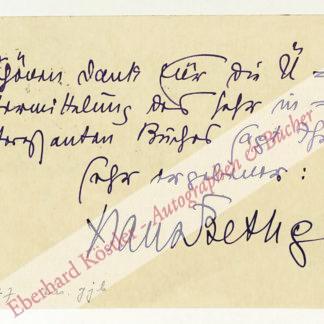 Schönen Dank für die Ü-
bermittelung des sehr in-
teressanten Buches sagt Ihr
sehr ergebener:
Hans Bethge
Eberhard Köstler - Autographen & Bücher